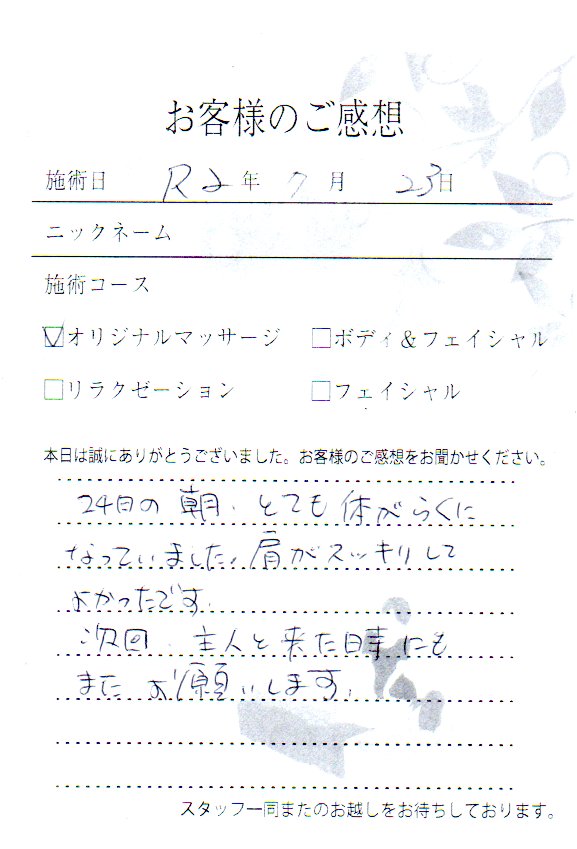 お客様のご感想
施術日 R2年 7月 23日
ニックネーム
施術コース
オリジナルマッサージ ボディ&フェイシャル
リラクゼーション フェイシャル
本日は誠にありがとうございました。お客様のご感想をお聞かせください。
24日の朝、とても体がらくに
なっていました。肩がスッキリして
よかったです。
次回、主人と来た時にも
またお願いします。
スタッフ一同またのお越しをお待ちしております。